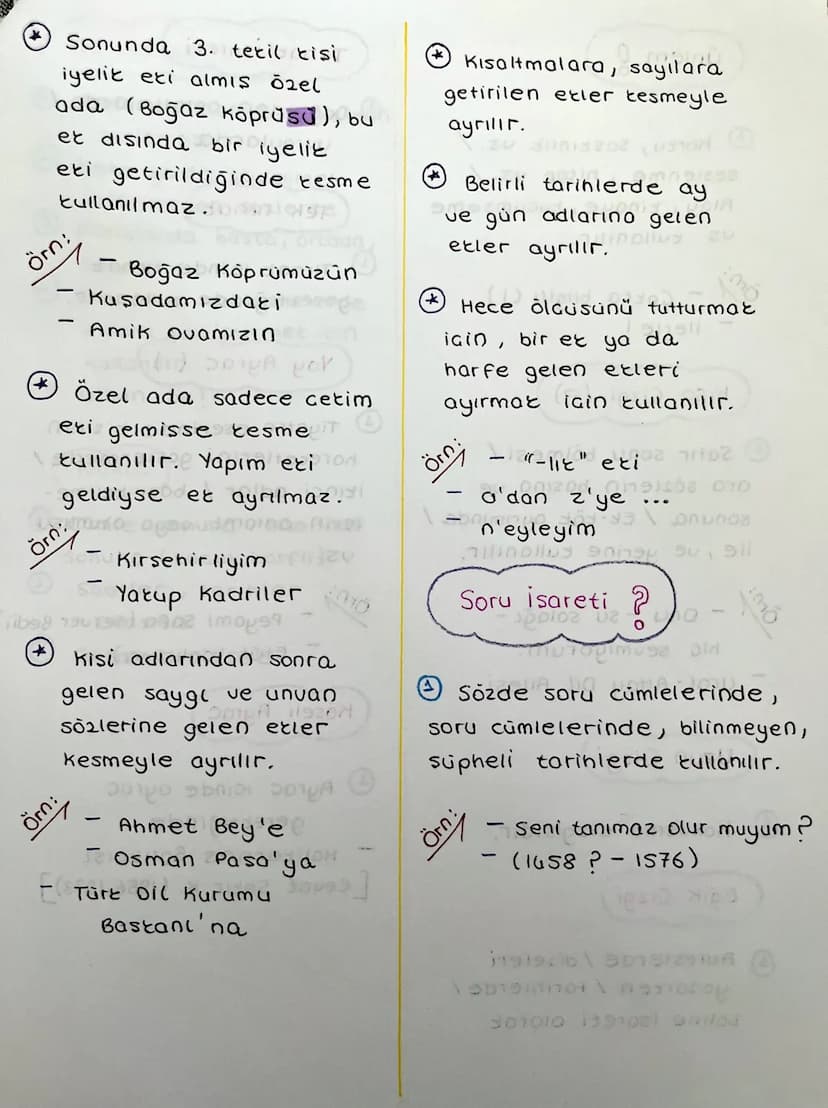 Sonunda 3. tekil kisi
iyelik eki almıs özel
ada (Boğaz Köprüsü), bu
ek dısında bir iyelik
eki getirildiğinde kesme
kullanılmaz.
Örn:
- Boğaz Köprümüzün
- Kusadamızdaki
- Amik ovamızın
Özel ada sadece cekim
eki gelmisse kesme
kullanılır. Yapım eki
geldiyse ek ayrılmaz.
Örn:
- Kırsehirliyim
- Yakup Kadriler
Kisi adlarından sonra
gelen saygı ve unvan
sözlerine gelen ekler
kesmeyle ayrılır.
Örn:
- Ahmet Bey'e
- Osman Pasa'ya
- Türk Dil Kurumu
Baskanı'na
Kısaltmalara, sayılara
getirilen ekler kesmeyle
ayrılır.
Belirli tarihlerde ay
ve gün adlarına gelen
ekler ayrılır.
Hece ölcüsünü tutturmak
icin, bir ek ya da
harfe gelen ekleri
ayırmak icin kullanılır.
Örn:
- "-lık" eki
- a'dan z'ye ...
- n'eyleyim
Soru isareti ?
1 Sözde soru cümlelerinde,
soru cümlelerinde, bilinmeyen,
süpheli tarihlerde kullanılır.
Örn:
- Seni tanımaz olur muyum?
- (1458 ? - 1576)